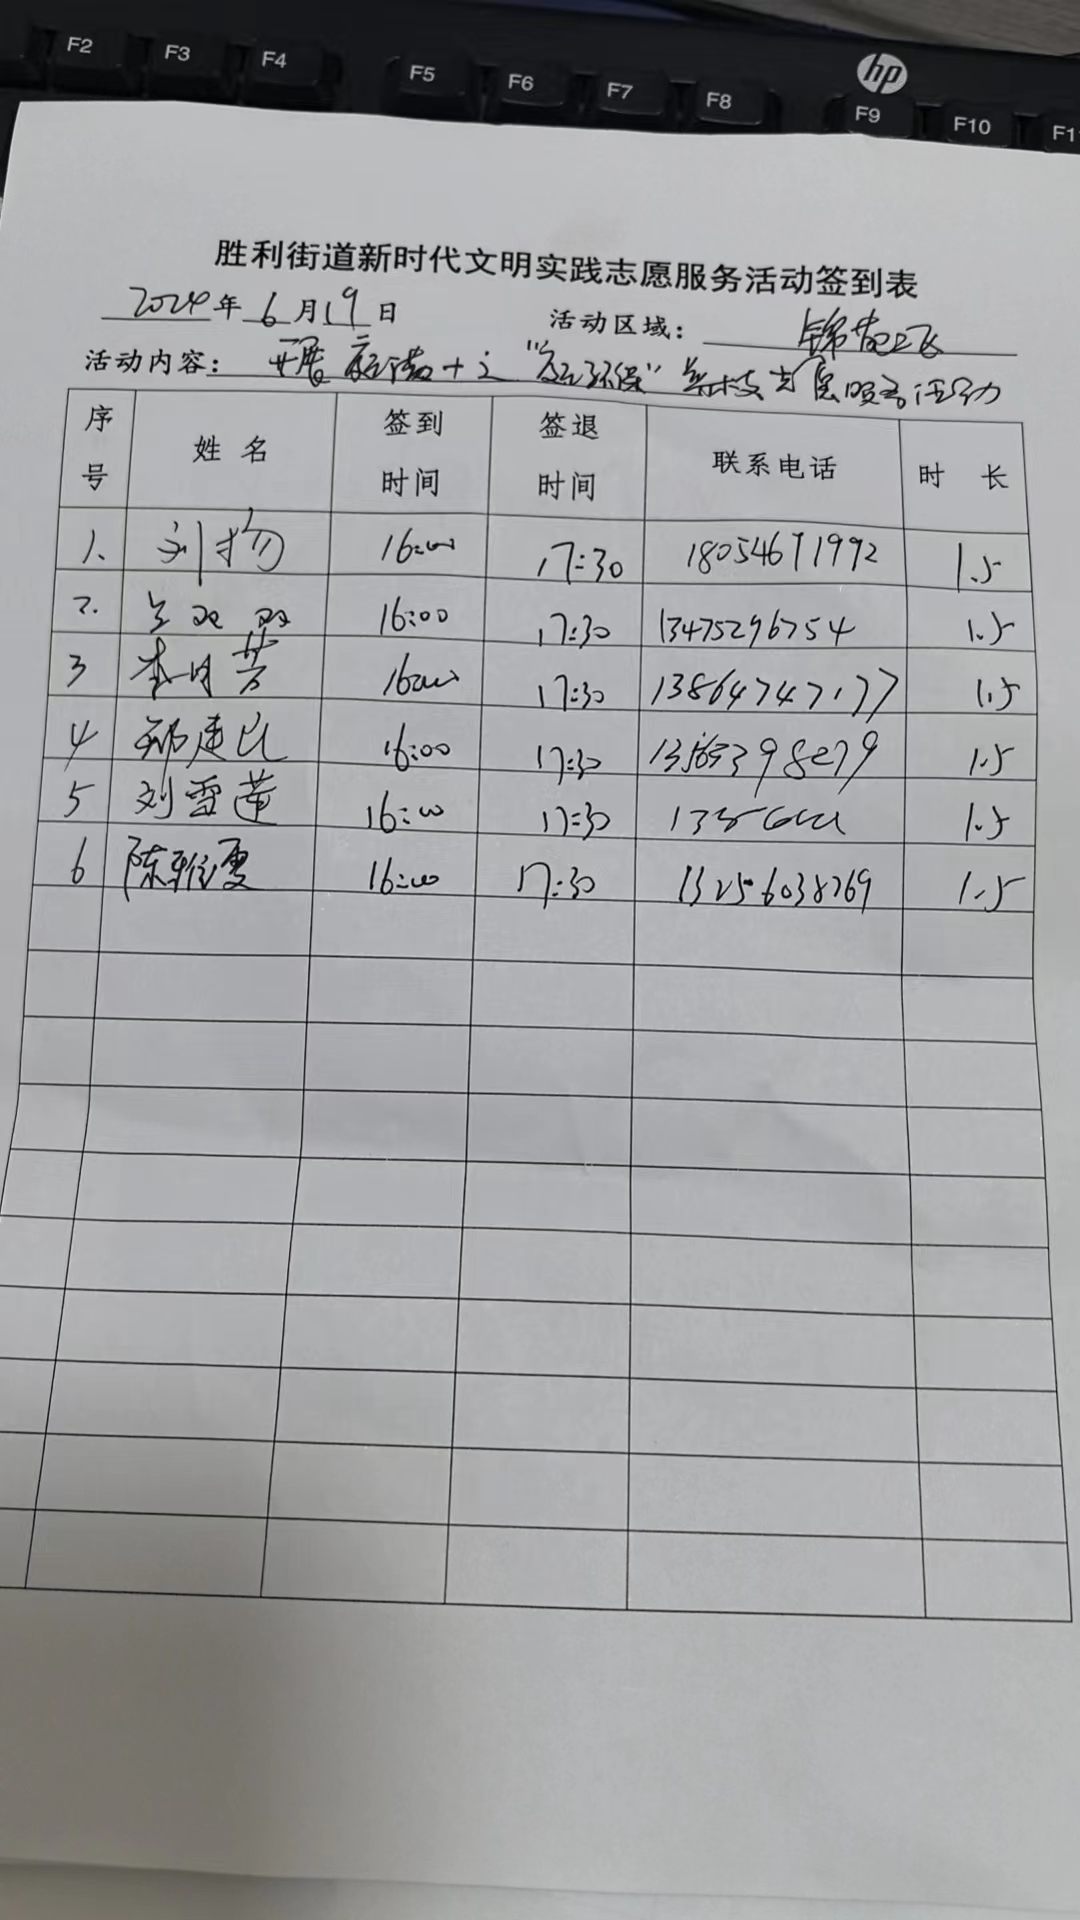 F2 F3 F4 F5 F6 F7 F8 F9 F10 F11
hp
胜利街道新时代文明实践志愿服务活动签到表
2024年6月19日 活动区域: 锦苑
活动内容: 开展 服务活动
序号 姓名 签到时间 签退时间 联系电话 时长
1. 刘扬 16:00 17:30 18054671992 1.5
2. 双双 16:00 17:30 13475296754 1.5
3 李月芳 16:00 17:30 13864747177 1.5
4 郑建 16:00 17:30 13563398279 1.5
5 刘雪莲 16:00 17:30 1.5
6 陈雅雯 16:00 17:30 13256038769 1.5